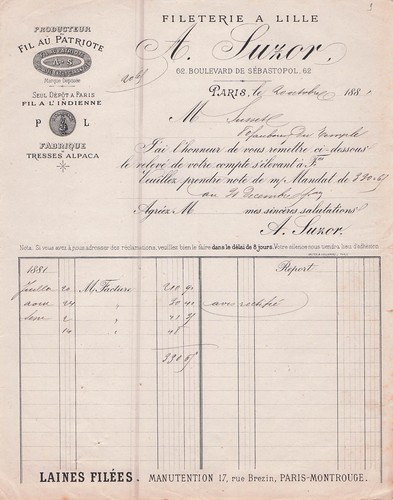 FILETERIE A LILLE
A. Suzor.
62, BOULEVARD DE SÉBASTOPOL, 62
PRODUCTEUR
du
FIL AU PATRIOTE
A*S
Marque Déposée
SEUL DÉPÔT A PARIS
du
FIL A L'INDIENNE
P L
FABRIQUE
de
TRESSES ALPACA
PARIS, le 20 octobre 1881
M
faubourg du Temple
J'ai l'honneur de vous remettre ci-dessous
le relevé de votre compte s'élevant à F
Veuillez prendre note de m/ Mandat de 330.65
au 31 Décembre
Agréez M mes sincères salutations
A. Suzor.
Nota. Si vous avez à nous adresser des réclamations, veuillez bien le faire dans le délai de 8 jours. Votre silence nous tiendra lieu d'adhésion.
1881 Report
Juillet 20 M/Facture 200 90
aout 24 " 30 40 avoir rectifié
2 " 41
14 " 48
330 65
LAINES FILÉES. MANUTENTION 17, rue Brezin, PARIS-MONTROUGE.